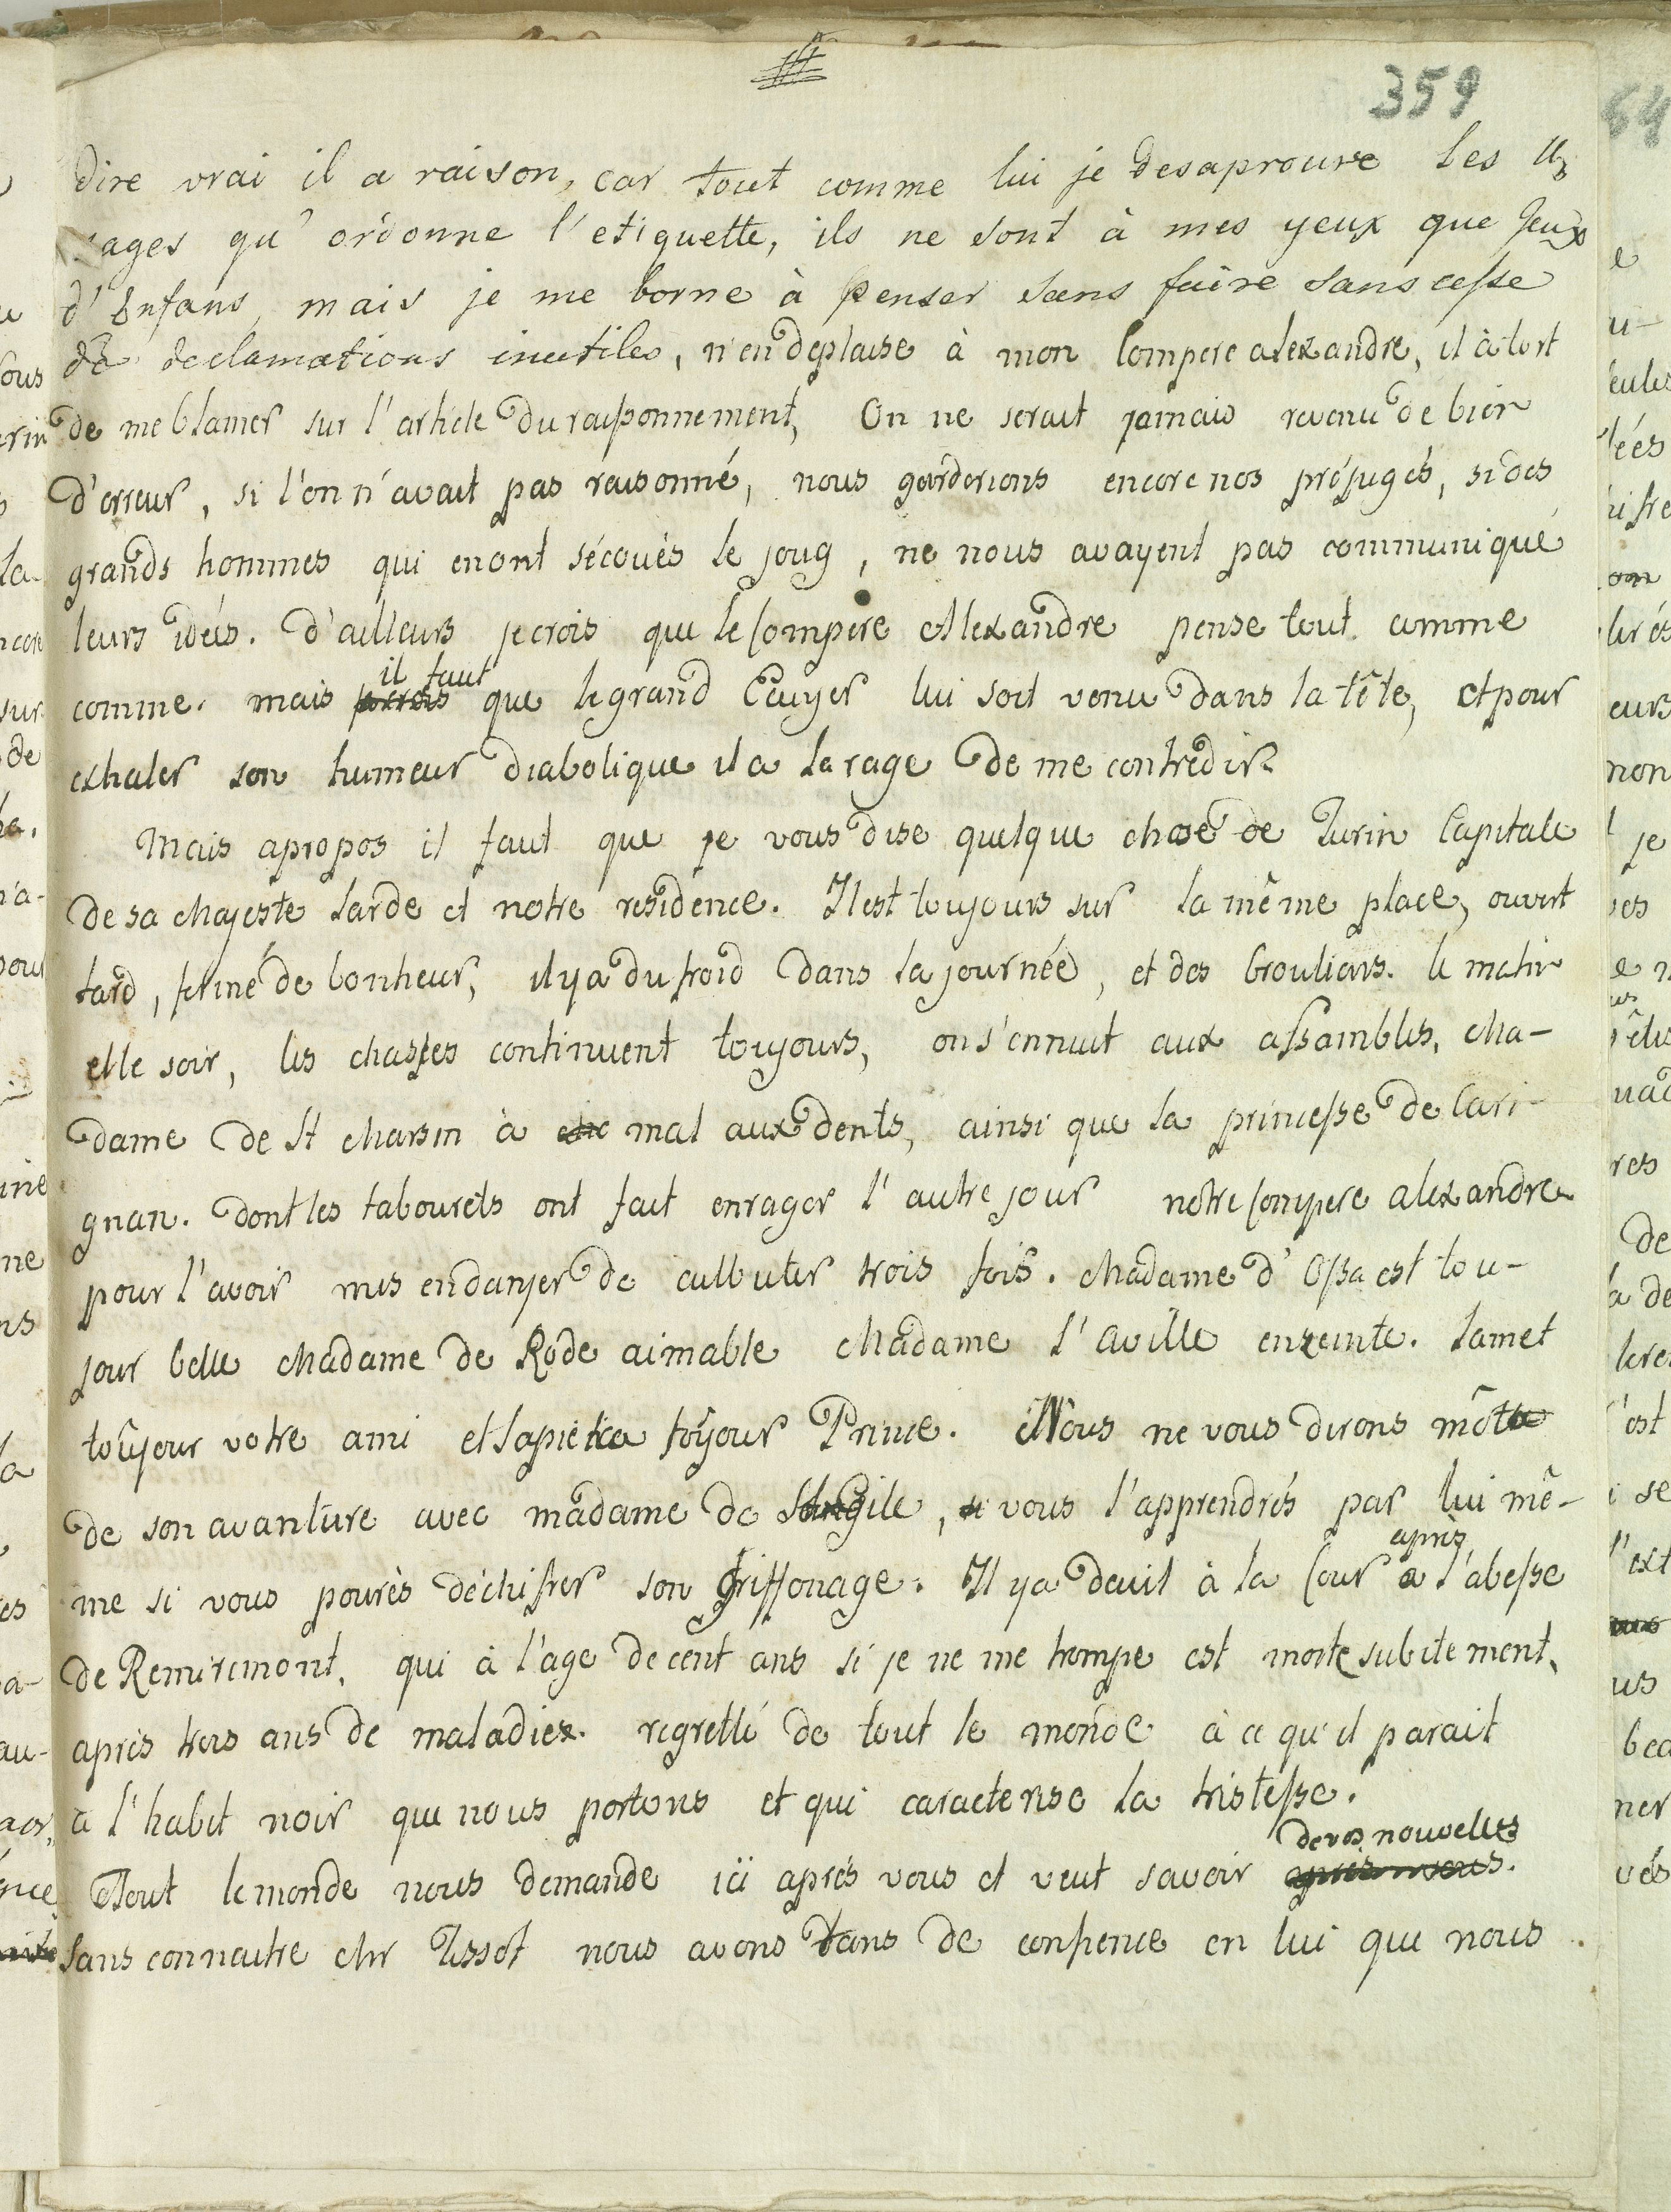 359
dire vrai il a raison, car tout comme lui je desaprouve les u-
sages qu'ordonne l'etiquette, ils ne sont à mes yeux que Jeux
d'Enfans, mais je me borne à penser sans faire sans cesse
de declamations inutiles, n'en deplaise à mon Compere alexandre, il à tort
de me blamer sur l'article du raisonnement, On ne serait jamais revenu de bien
d'erreur, si l'on n'avait pas raisonné, nous garderions encore nos préjugés, si des
grands hommes qui en ont sécoués le joug, ne nous avayent pas communiqué
leurs idées. D'ailleurs je crois que le Compère Alexandre pense tout comme
il faut
comme. mais que le grand Ecuyer lui soit venu dans la tête, et pour
exhaler son humeur diabolique il a la rage de me contredire
Mais apropos il faut que je vous dise quelque chose de Turin Capitale
de sa Majeste Sarde et notre residence. Il est toujours sur la même place, ouvert
tard, fermé de bonheur, il y a du froid dans la journée, et des brouliars. le matin
et le soir, les chasses continuent toujours, on s'ennuit aux assambles, Ma-
dame de St Marsin à mal aux dents, ainsi que la princesse de Cari-
gnan. dont les tabourets ont fait enrager l'autre jour notre Compere alexandre
pour l'avoir mis en danjer de culbuter trois fois. Madame d'Ossa est tou-
jour belle Madame de Rode aimable Madame l'aville enzeinte. Samet
toujour votre ami et Sapieha toujour Prince. Nous ne vous dirons mot
de son avanture avec madame de vous l'apprendrés par lui mê-
après
me si vous pourès déchifrer son Griffonage. Il y a deuil à la Cour l'abesse
de Remiremont, qui à l'age de cent ans si je ne me trompe est morte subitement,
après trois ans de maladies. regretté de tout le monde à ce qu'il parait
a l'habit noir que nous portons et qui caracterise la tristesse.
de vos nouvelles
Tout le monde nous demande ici après vous et veut savoir après vous.
Sans connaitre Mr Tissot nous avons tans de confience en lui que nous